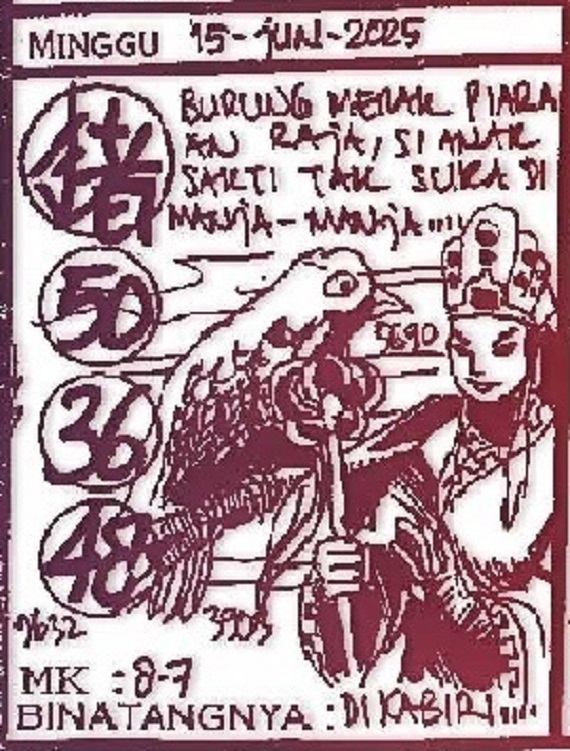 MINGGU 15-JUNI-2025
BURUNG MERAK PIARA
AN RAJA, SI ANAK
SAKTI TAK SUKA DI
MANJA-MANJA....
猪
50
5690
36
48
9632
MK : 8-7
BINATANGNYA : DI KABIRI....